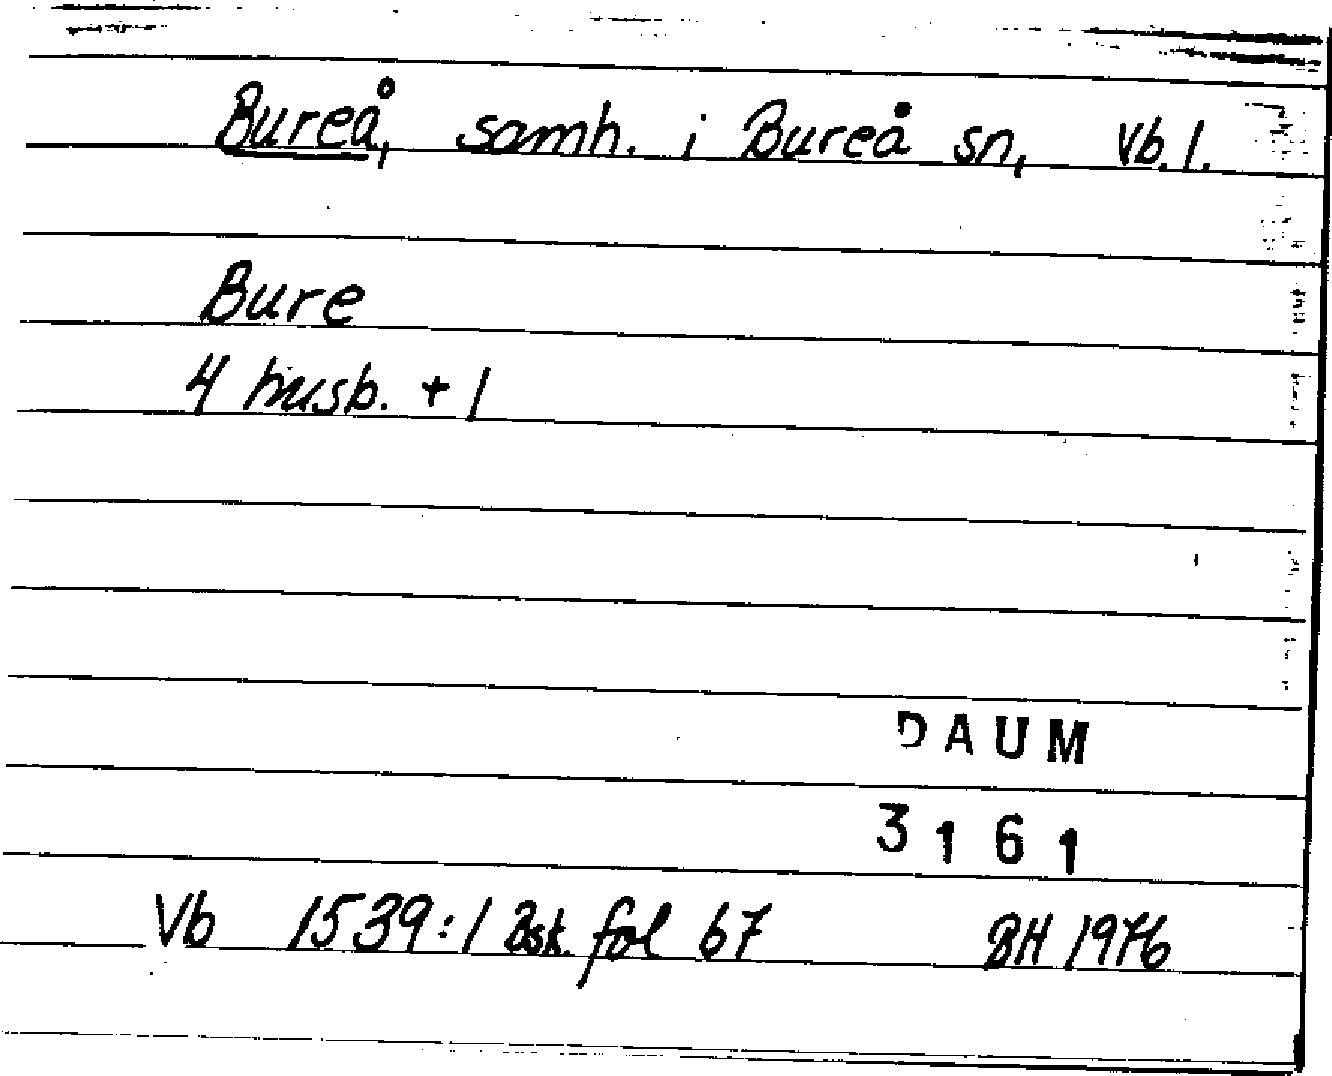 Bureå, samh. i Bureå sn, Vb. l.
Bure
4 husb. + 1
DAUM
3161
Vb 1539:1 Bsk. fol 67 BH 1976